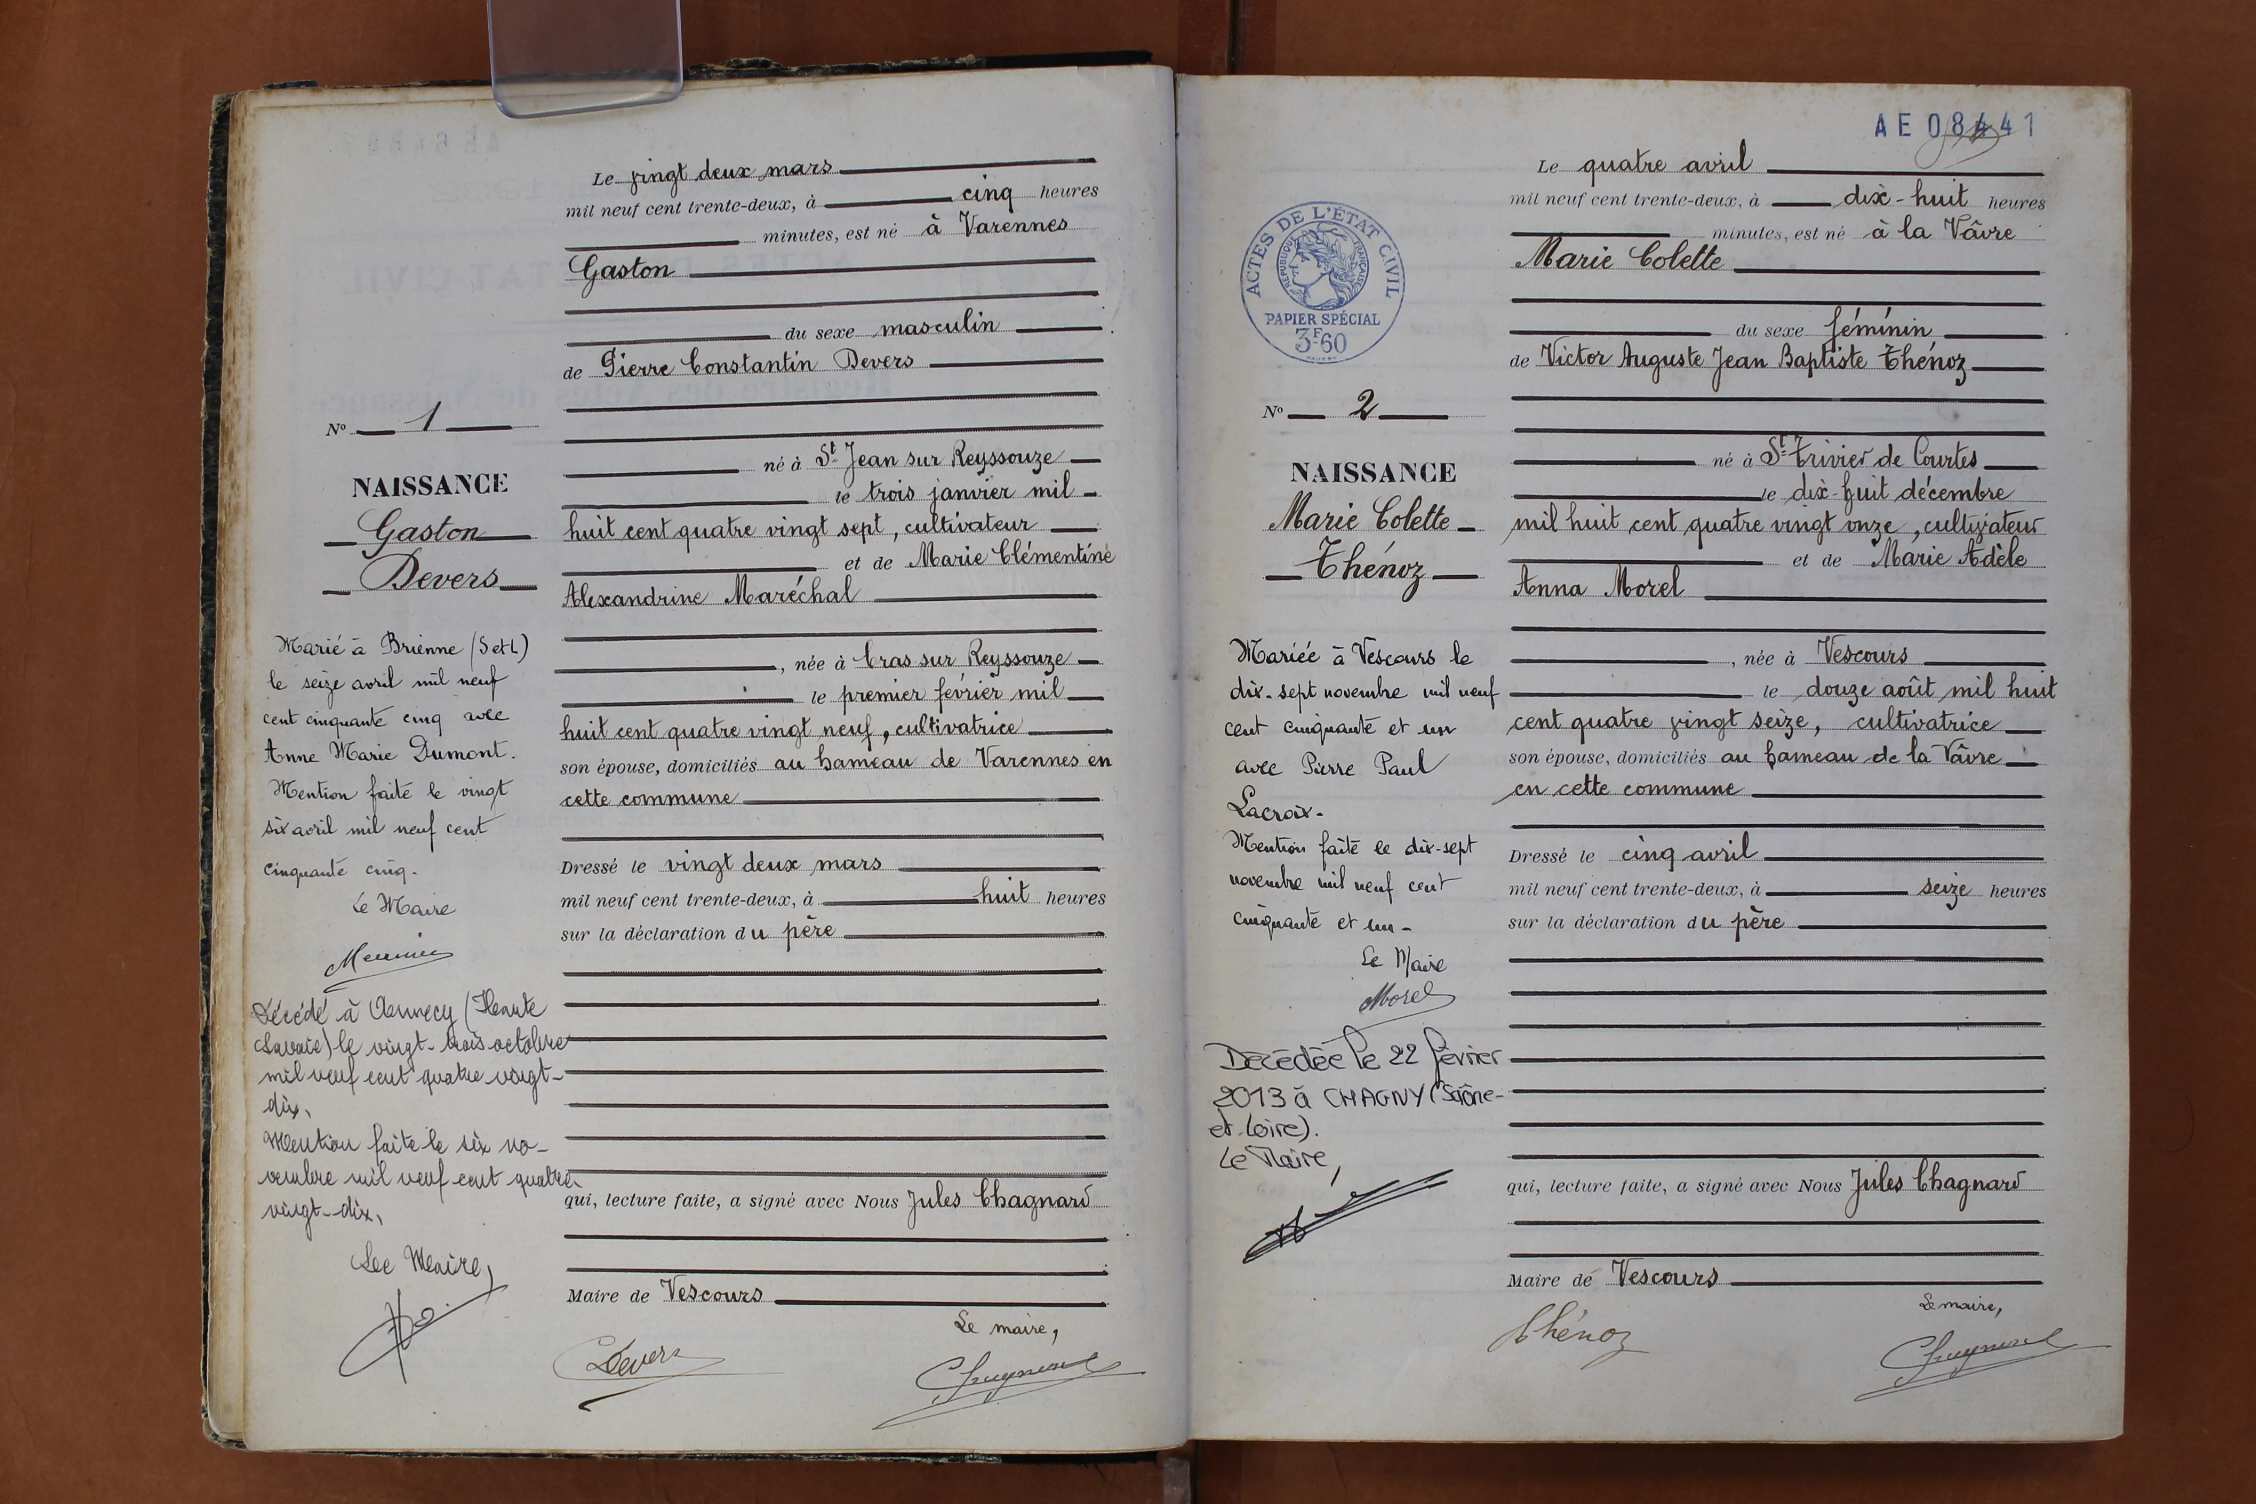 Le vingt deux mars
mil neuf cent trente-deux, à cinq heures
minutes, est né à Varennes
Gaston
du sexe masculin
de Pierre Constantin Devers
né à St Jean sur Reyssouze
le trois janvier mil
huit cent quatre vingt sept, cultivateur
et de Marie Clémentine
Alexandrine Maréchal
, née à Cras sur Reyssouze
le premier février mil
huit cent quatre vingt neuf, cultivatrice
son épouse, domiciliés au hameau de Varennes en
cette commune
Dressé le vingt deux mars
mil neuf cent trente-deux, à huit heures
sur la déclaration du père
qui, lecture faite, a signé avec Nous Jules Chagnard
Maire de Vescours
Le maire,
Devers
No 1
NAISSANCE
Gaston
Devers
Marié à Brienne (S et L)
le seize avril mil neuf
cent cinquante cinq avec
Anne Marie Dumont.
Mention faite le vingt
six avril mil neuf cent
cinquante cinq.
Le Maire
Décédé à Annecy (Haute
Savoie) le vingt-trois octobre
mil neuf cent quatre vingt-
dix,
Mention faite le six no-
vembre mil neuf cent quatre
vingt-dix,
Le Maire,
AE 08441
Le quatre avril
mil neuf cent trente-deux, à dix-huit heures
minutes, est né à la Vâvre
Marie Colette
du sexe féminin
de Victor Auguste Jean Baptiste Thénoz
né à St Trivier de Courtes
le dix-huit décembre
mil huit cent quatre vingt onze, cultivateur
et de Marie Adèle
Anna Morel
, née à Vescours
le douze août mil huit
cent quatre vingt seize, cultivatrice
son épouse, domiciliés au hameau de la Vâvre
en cette commune
Dressé le cinq avril
mil neuf cent trente-deux, à seize heures
sur la déclaration du père
qui, lecture faite, a signé avec Nous Jules Chagnard
Maire de Vescours
Le maire,
Thénoz
ACTES DE L'ÉTAT CIVIL
RÉPUBLIQUE FRANÇAISE
PAPIER SPÉCIAL
3F60
No 2
NAISSANCE
Marie Colette
Thénoz
Mariée à Vescours le
dix-sept novembre mil neuf
cent cinquante et un
avec Pierre Paul
Lacroix-
Mention faite le dix-sept
novembre mil neuf cent
cinquante et un-
Le Maire
Morel
Décédée le 22 février
2013 à CHAGNY (Saône-
et-Loire).
Le Maire,